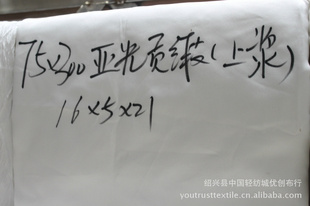 75×300亚光贡缎(上浆)
16×5×21
绍兴县中国轻纺城优创布行
youtrusttextile.cn.1688.com